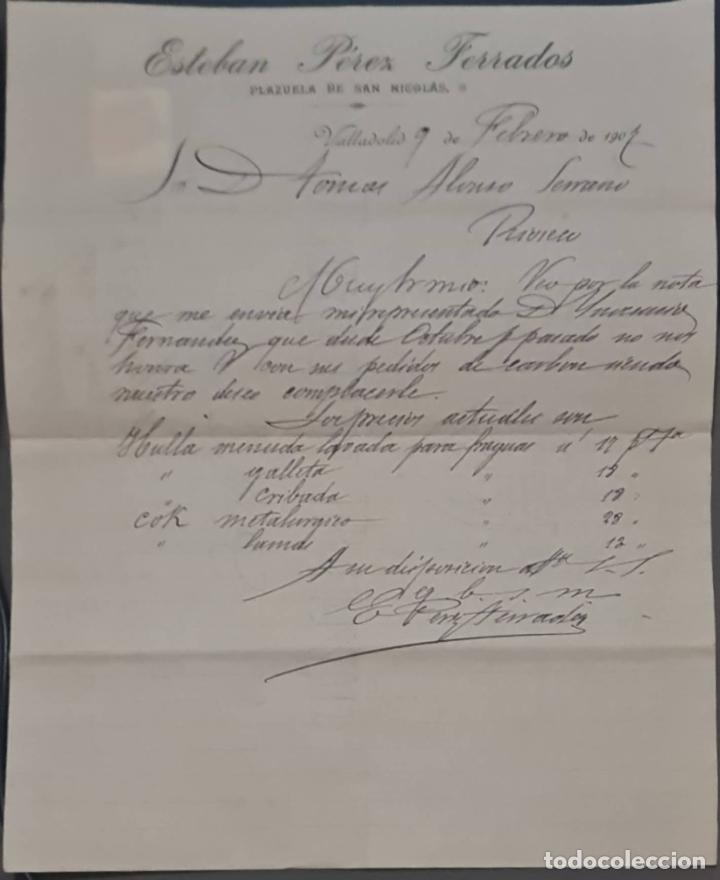 Esteban Pérez Ferrados
PLAZUELA DE SAN NICOLÁS,
Valladolid 9 de Febrero de 1907
Sr D Tomas Alonso Serrano
Rioseco
Muy Sr mio: Veo por la nota
que me envia mi representado D.
Fernandez que desde Octubre ppasado no nos
honra V con sus pedidos de carbon siendo
nuestro deseo complacerle.
Los precios actuales son
Hulla menuda lavada para fraguas a 17 Ptas
" galleta " 19 "
" cribada " 18 "
cok metalurgico " 28 "
" " 12 "
A su disposicion S. S.
q b. s. m
E Perez Ferrados
todocoleccion.net